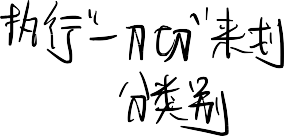 执行“一刀切”来划
分类别